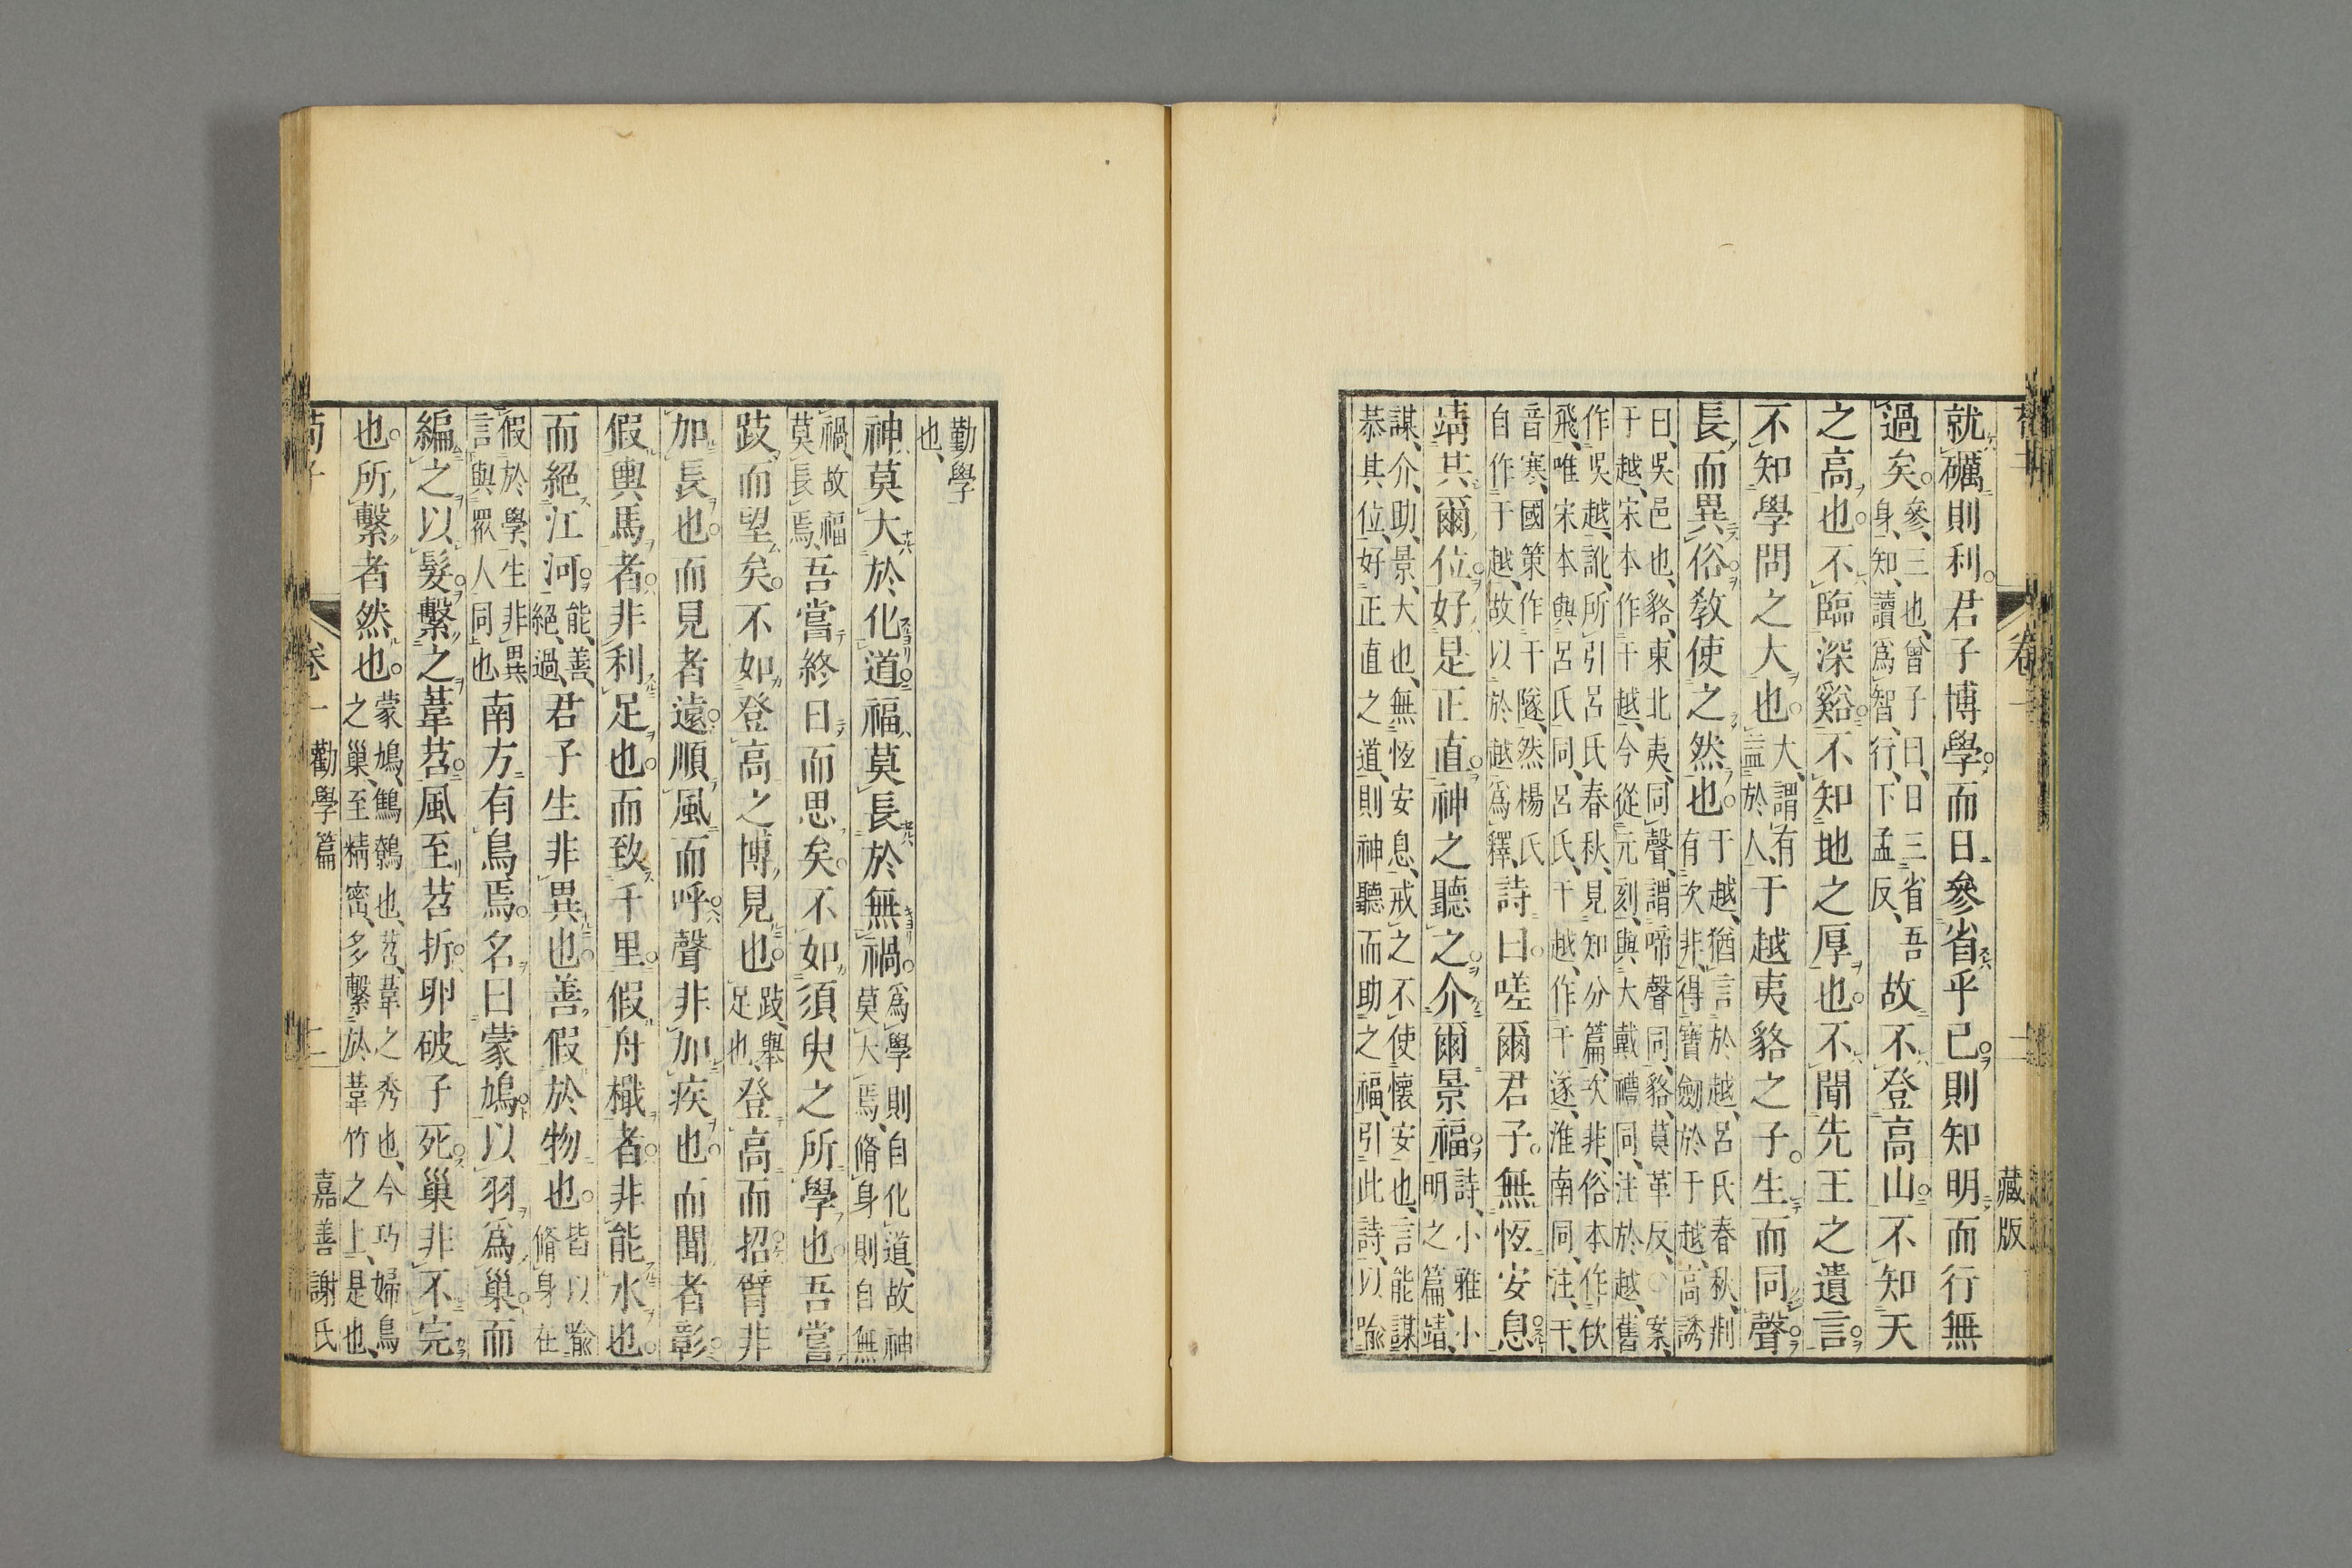 卷一
二
藏版
就礪則利。君子博學而日參省乎已。則知明而行無
過矣。
參、三也、曾子曰、日三省吾
身、知、讀爲智、行、下孟反、
故不登高山不知天
之高也。不臨深谿不知地之厚也。不聞先王之遺言
不知學問之大也。
大、謂有
益於人、
于越夷貉之子。生而同聲
長而異俗敎使之然也。
于越、猶言於越、呂氏春秋、荆
有次非、得寶劒於于越、高誘
曰、吳邑也、貉、東北夷、同聲、謂啼聲同、貉、莫革反、○案、
于越、宋本作干越、今從元刻、與大戴禮同、注於越、舊
作吳越、訛、所引呂氏春秋、見知分篇、次非、俗本作佽
飛、唯宋本與呂氏同、呂氏、干越、作干遂、淮南同、注、干、
音寒、國策作干隧、然楊氏
自作于越、故以於越爲釋、
詩曰嗟爾君子。無恆安息
靖共爾位好是正直神之聽之介爾景福
詩、小雅小
明之篇、靖、
謀、介、助、景、大也、無恆安息、戒之不使懷安也、言能謀
恭其位、好正直之道、則神聽而助之福、引此詩、以喩
勤學
也、
神莫大於化道福莫長於無禍。
爲學則自化道、故神
莫大焉、脩身則自無
禍、故福
莫長焉、
吾嘗終日而思矣。不如須臾之所學也。吾嘗
跂而望矣。不如登高之博見也。
跂、舉
足也、
登高而招。臂非
加長也。而見者遠。順風而呼。聲非加疾也。而聞者彰
假輿馬者。非利足也。而致千里。假舟檝者。非能水也。
而絕江河
能、善、
絕、過、
君子生非異也。善假於物也。
皆以喩
脩身在
假於學、生非異、
言與眾人同也
南方有鳥焉。名曰蒙鳩。以羽爲巢。而
編之以髮。繫之葦苕。風至苕折。卵破子死。巢非不完
也。所繫者然也。
蒙鳩、鷦鷯也、苕、葦之秀也、今巧婦鳥
之巢、至精密、多繫於葦竹之上、是也、
荀子
卷一
勸學篇
二
嘉善謝氏